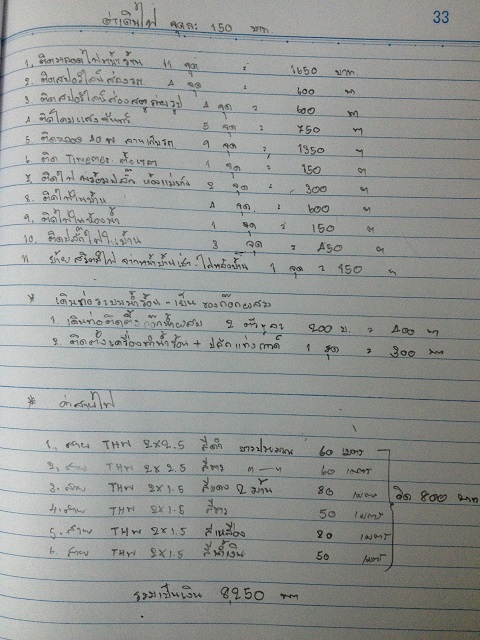 33
ค่าเดินไฟ จุดละ 150 บาท
1. ติดหลอดไฟหน้าร้าน 11 จุด = 1650 บาท
2. ติดสปอร์ตไลน์ส่องรถ 4 จุด = 600 "
3 ติดสปอร์ตไลน์ส่อง 4 จุด = 600 "
4 ติดโคมแสงจันทร์ 5 จุด = 750 "
5 ติดหลอด 40 w ลานเก็บรถ 9 จุด = 1350 "
6 ติด Timemer 1 จุด = 150 "
7 ติดไฟ พร้อมปลั๊ก ห้องแม่บ้าน 2 จุด = 300 "
8. ติดไฟในบ้าน 4 จุด = 600 "
9. ติดไฟในห้องน้ำ 1 จุด = 150 "
10. ติดปลั๊กไฟในบ้าน 3 จุด = 450 "
11 ย้ายสวิตซ์ไฟ จากหน้าบ้าน ไปหลังบ้าน 1 จุด = 150 "
* เดินท่อระบบน้ำร้อน - เย็น ของก๊อกผสม
1. เดินท่อติดตั้งก๊อกน้ำผสม 2 ตัว 200 บ. = 400 บาท
2. ติดตั้งเครื่องทำน้ำร้อน + ปลั๊ก 1 จุด = 300 บาท
* ค่าสายไฟ
1. สาย THW 2x2.5 สีดำ ยาวประมาณ 60 เมตร
2. สาย THW 2x2.5 สีขาว " — " 60 เมตร
3. สาย THW 2x1.5 สีแดง 2 ม้วน 80 เมตร คิด 800 บาท
4. สาย THW 2x1.5 สีขาว 50 เมตร
5. สาย THW 2x1.5 สีเหลือง 20 เมตร
6. สาย THW 2x1.5 สีน้ำเงิน 50 เมตร
รวมเป็นเงิน 8250 บาท